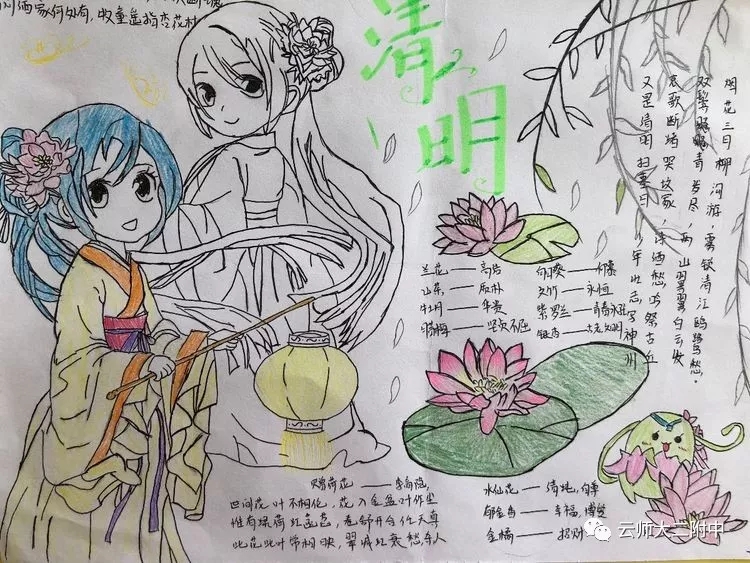 问酒家何处有，牧童遥指杏花村
清明
烟花三月柳
河游，雾锁清江鸥鹭愁。
双鬓
青岁尽，两山翠翠白云收
哀歌断续哭坟冢，诗酒愁吟祭古丘
又是清明扫墓日，少年壮志写神州
兰花——高洁
山茶——质朴
牡丹——华贵
梅——坚贞不屈
向日葵——仰慕
文竹——永恒
紫罗兰——青春永驻
银杏——古老文明
赠荷花——李商隐
世间花叶不相伦，花入金盆叶作尘
惟有绿荷红菡萏，卷舒开合任天真
此花此叶常相映，翠减红衰愁杀人
水仙花——清纯，自尊
郁金香——幸福，博爱
金橘——招财
云师大二附中